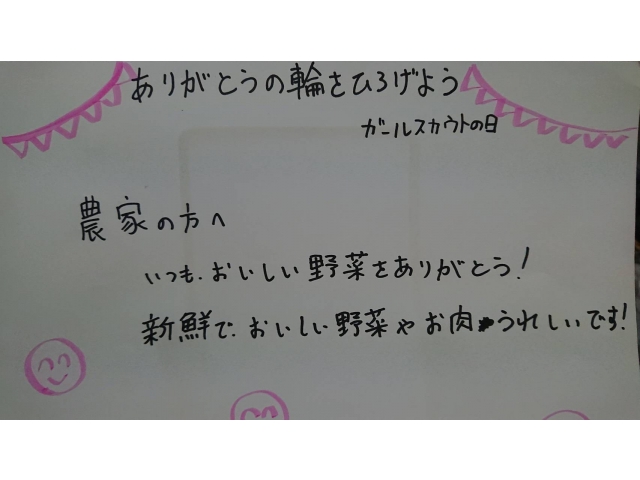 ありがとうの輪をひろげよう
ガールスカウトの日
農家の方へ
いつも、おいしい野菜をありがとう!
新鮮で、おいしい野菜やお肉うれしいです!